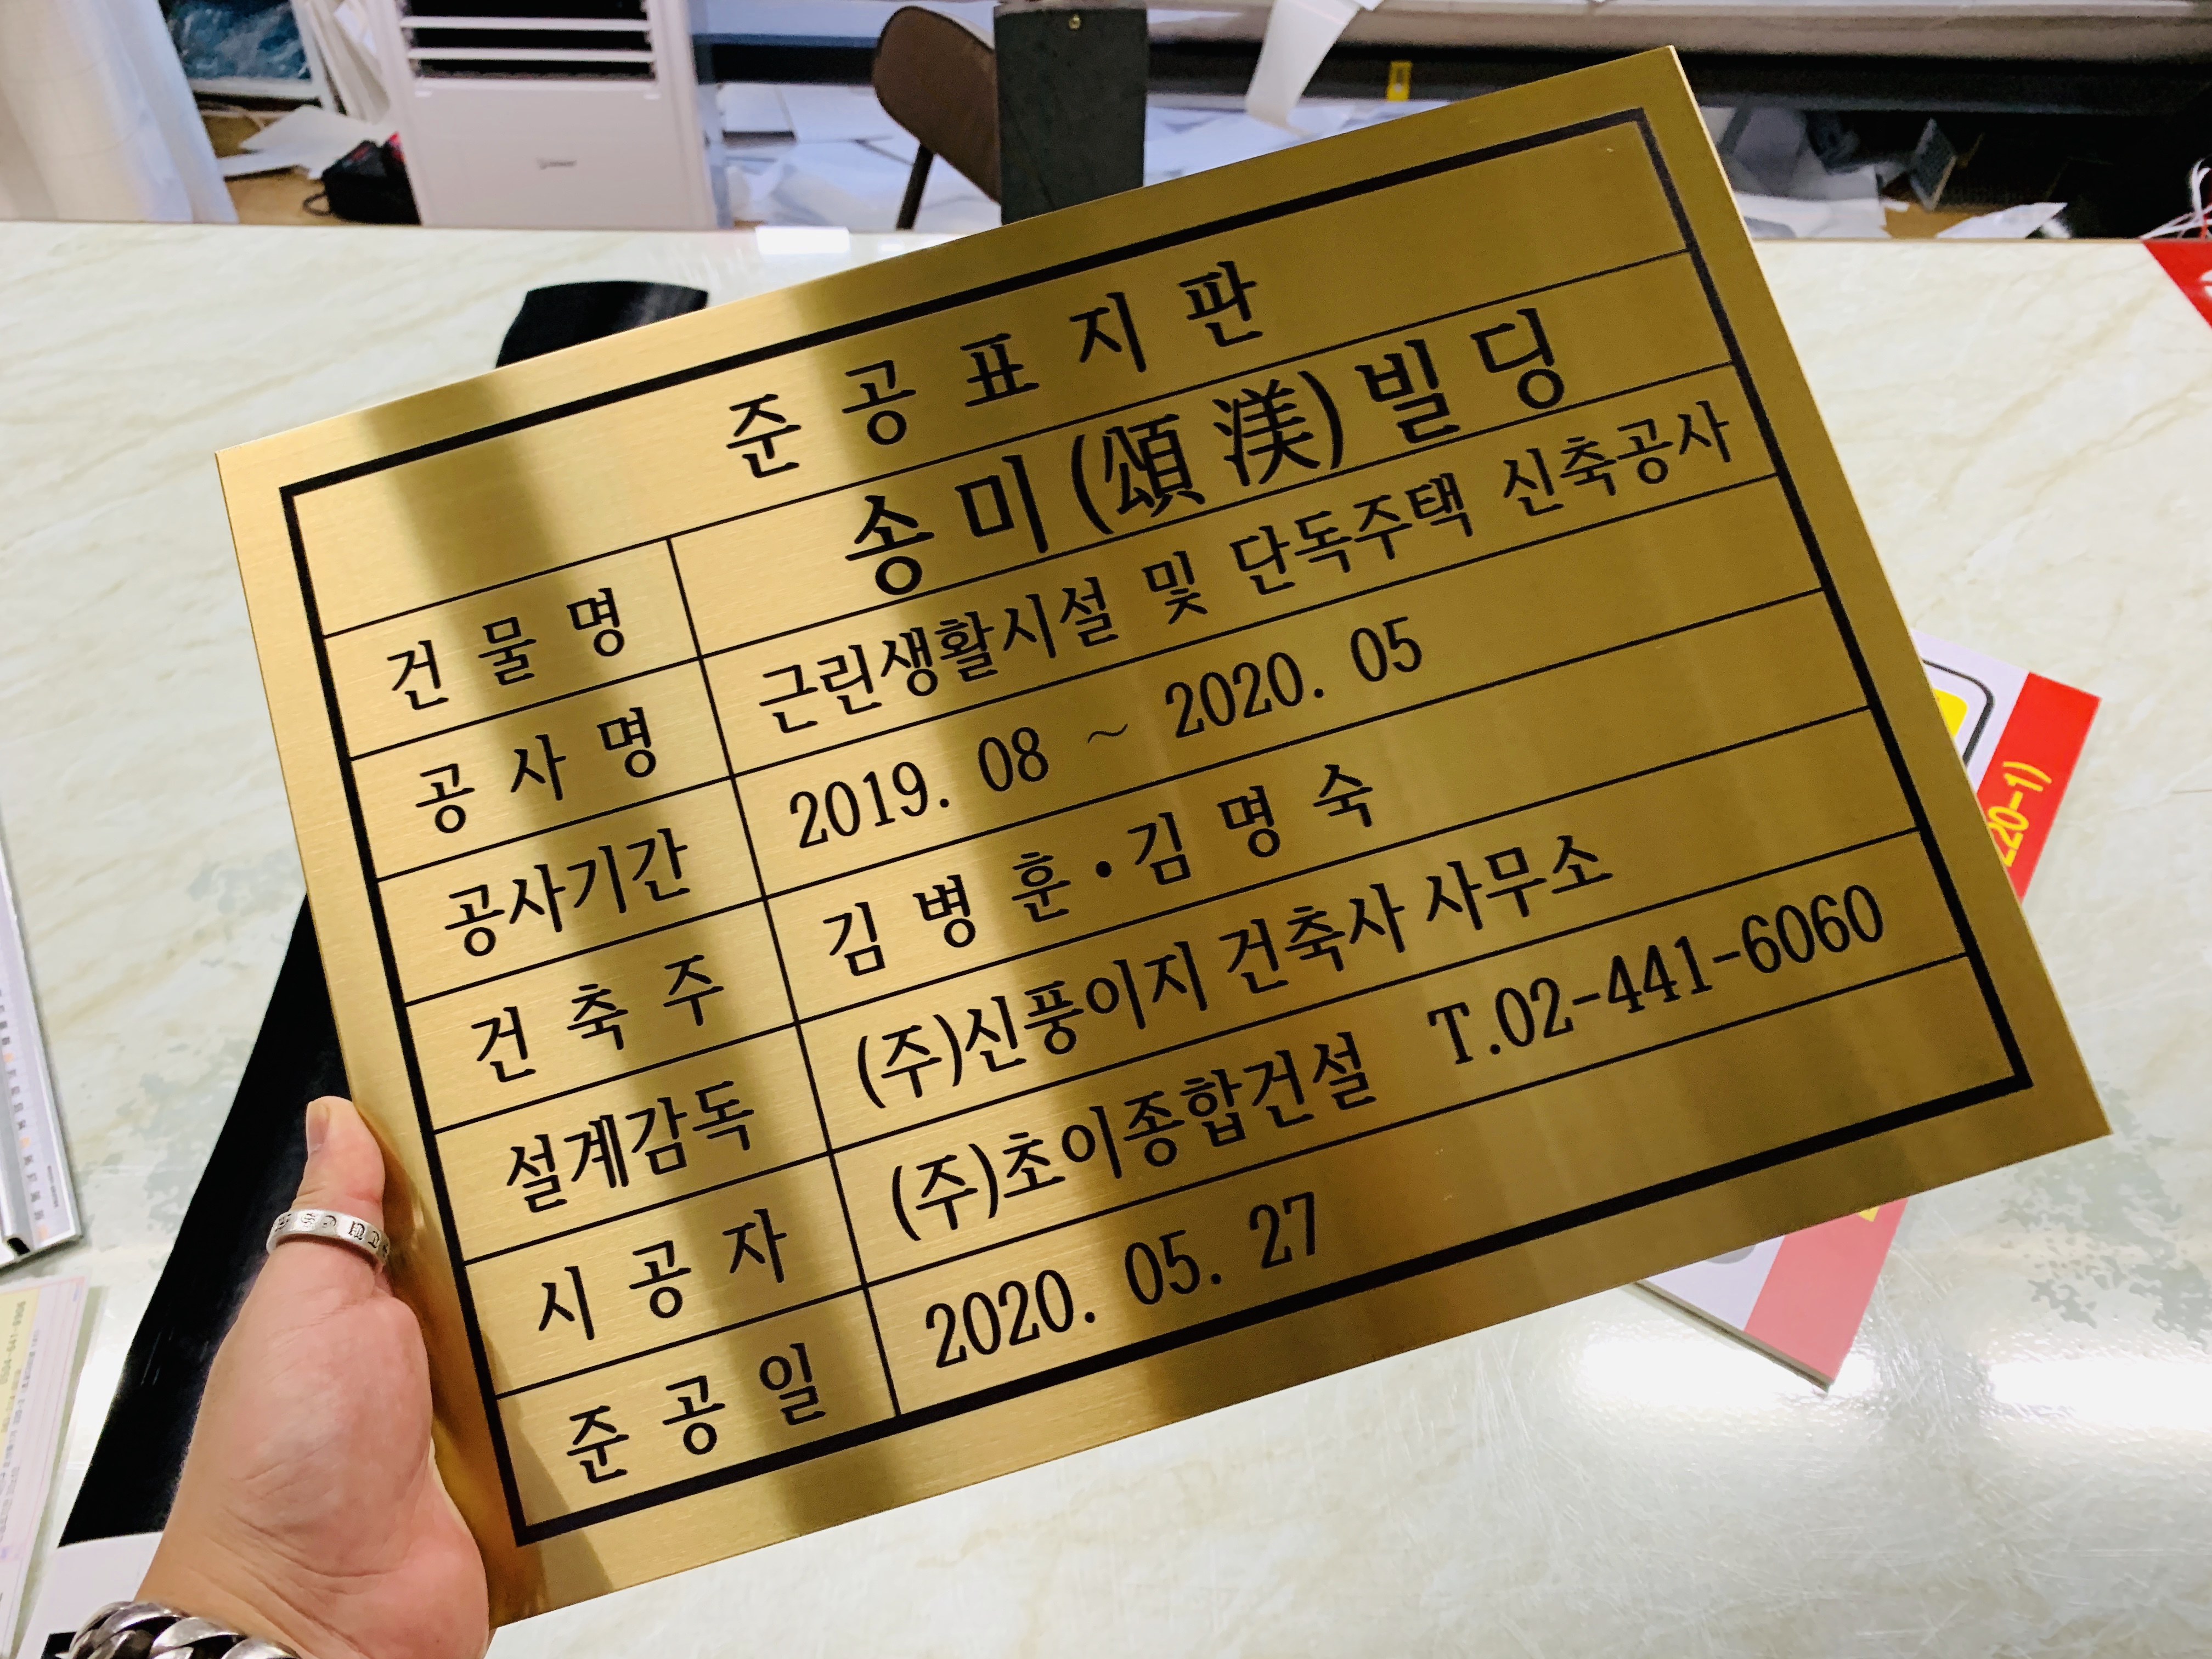 준공표지판
건물명 송미(頌渼)빌딩
공사명 근린생활시설 및 단독주택 신축공사
공사기간 2019. 08 ~ 2020. 05
건축주 김병훈·김명숙
설계감독 (주)신풍이지 건축사 사무소
시공자 (주)초이종합건설 T.02-441-6060
준공일 2020. 05. 27
20-1)